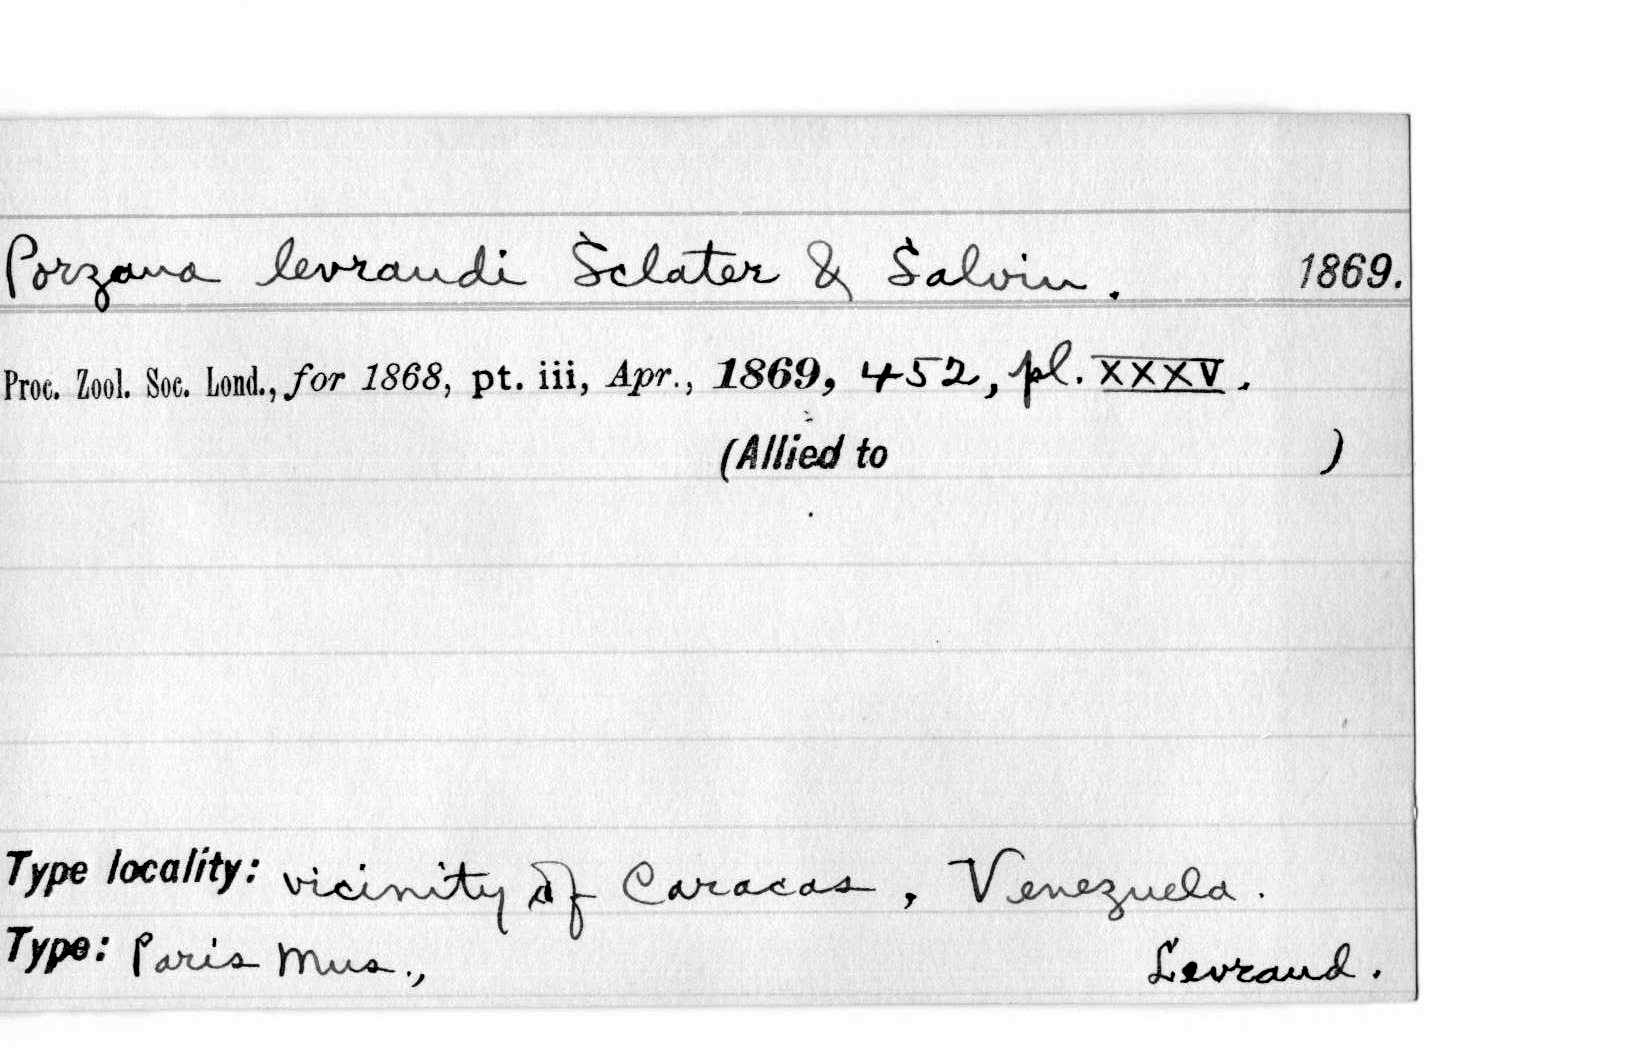 Porzana levraudi Sclater & Salvin. 1869.
Proc. Zool. Soc. Lond., for 1868, pt. iii, Apr., 1869, 452, pl. XXXV.
(Allied to )
Type locality: vicinity of Caracas, Venezuela.
Type: Paris Mus., Levraud.